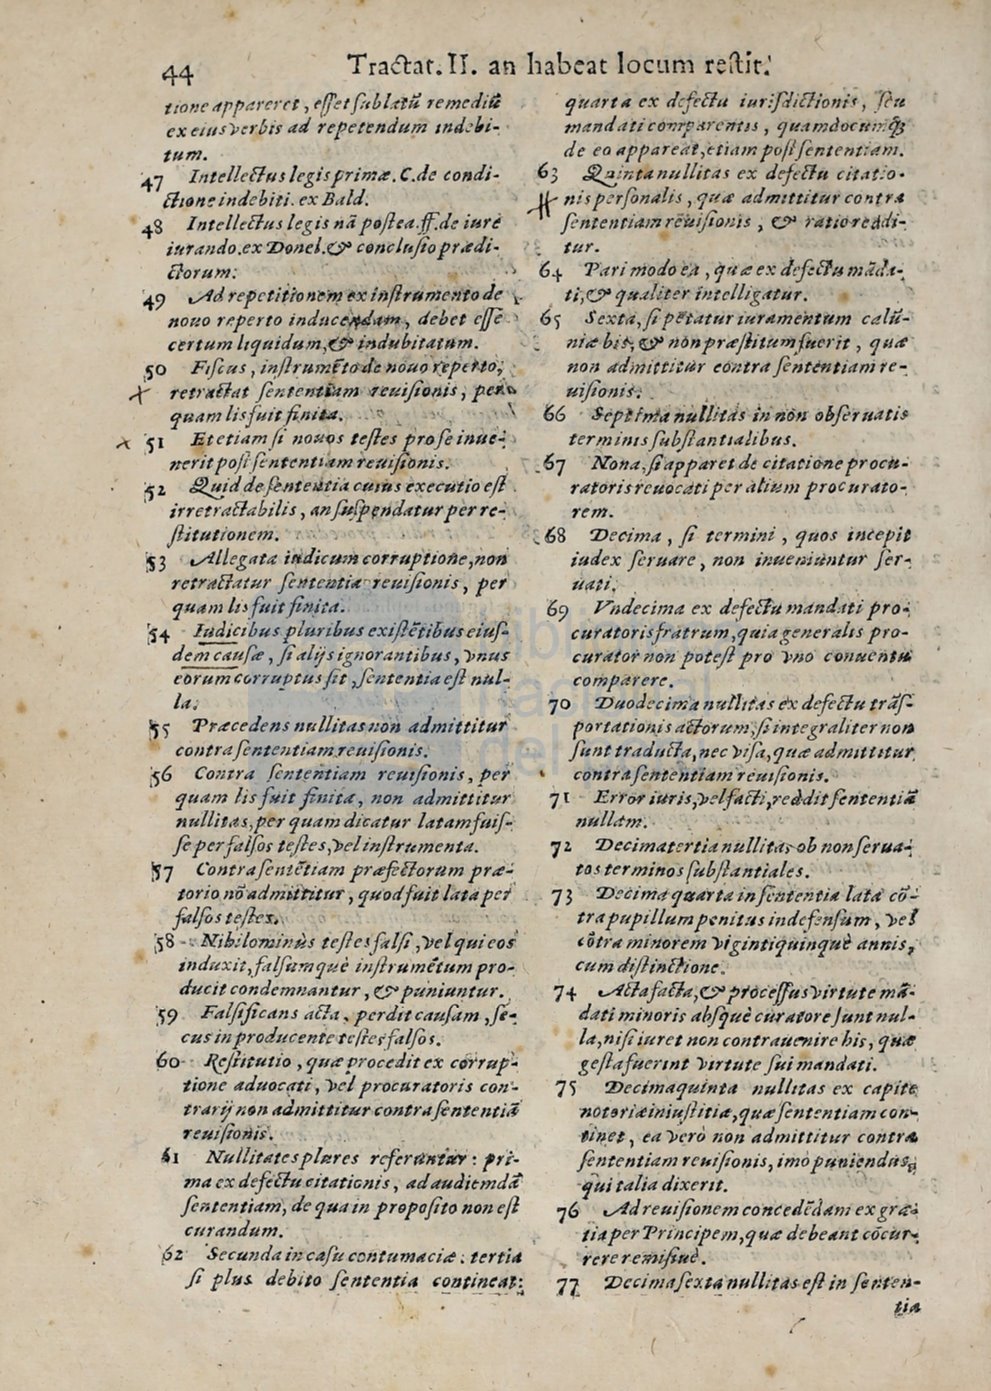 44 Tractat. II. an habeat locum restit.
tione appareret, esset sublatũ remediũ
ex eius verbis ad repetendum indebi-
tum.
47 Intellectus legis primæ. C. de condi-
ctione indebiti. ex Bald.
48 Intellectus legis nã postea. ff. de iure
iurando. ex Donel. & conclusio prædi-
ctorum.
49 Ad repetitionem ex instrumento de
nouo reperto inducendam, debet esse
certum liquidum, & indubitatum.
50 Fiscus, instrumẽto de nouo reperto,
retractat sententiam reuisionis, per
quam lis fuit finita.
51 Et etiam si nouos testes pro se inue-
nerit post sententiam reuisionis.
52 Quid de sententia cuius executio est
irretractabilis, an suspendatur per re-
stitutionem.
53 Allegata iudicum corruptione, non
retractatur sententia reuisionis, per
quam lis fuit finita.
54 Iudicibus pluribus existẽtibus eius-
dem causæ, si alijs ignorantibus, vnus
eorum corruptus sit, sententia est nul-
la.
55 Præcedens nullitas non admittitur
contra sententiam reuisionis.
56 Contra sententiam reuisionis, per
quam lis fuit finita, non admittitur
nullitas, per quam dicatur latam fuis-
se per falsos testes, vel instrumenta.
57 Contra sentẽtiam præfectorum præ-
torio nõ admittitur, quod fuit lata per
falsos testes.
58 Nihilominùs testes falsi, vel qui eos
induxit, falsumquè instrumẽtum pro-
ducit condemnantur, & puniuntur.
59 Falsificans acta, perdit causam, se-
cus in producente testes falsos.
60 Restitutio, quæ procedit ex corrup-
tione aduocati, vel procuratoris con-
trarij non admittitur contra sententiã
reuisionis.
61 Nullitates plures referuntur: pri-
ma ex defectu citationis, ad audiemdã
sententiam, de qua in proposito non est
curandum.
62 Secunda in casu contumaciæ: tertia
si plus debito sententia contineat:
quarta ex defectu iurisdictionis, seu
mandati comparentis, quamdocunq́;
de eo appareat, etiam post sententiam.
63 Quinta nullitas ex defectu citatio-
nis personalis, quæ admittitur contra
sententiam reuisionis, & ratio reddi-
tur.
64 Pari modo ea, quæ ex defectu mãda-
ti, & qualiter intelligatur.
65 Sexta, si petatur iuramentum calũ-
niæ bis, & non præstitum fuerit, quæ
non admittitur contra sententiam re-
uisionis.
66 Septima nullitas in non obseruatis
terminis substantialibus.
67 Nona, si apparet de citatione procu-
ratoris reuocati per alium procurato-
rem.
68 Decima, si termini, quos incepit
iudex seruare, non inueniuntur ser-
uati.
69 Vndecima ex defectu mandati pro-
curatoris fratrum, quia generalis pro-
curator non potest pro vno conuentu
comparere.
70 Duodecima nullitas ex defectu trãs-
portationis actorum, si integraliter non
sunt traducta, nec visa, quæ admittitur
contra sententiam reuisionis.
71 Error iuris, vel facti, reddit sententiã
nullam.
72 Decimatertia nullitas ob non serua-
tos terminos substantiales.
73 Decima quarta in sententia lata cõ-
tra pupillum penitus indefensum, vel
cõtra minorem vigintiquinquè annis,
cum distinctione.
74 Acta facta, & processus virtute mã-
dati minoris absquè curatore sunt nul-
la, nisi iuret non contrauenire his, quæ
gesta fuerint virtute sui mandati.
75 Decimaquinta nullitas ex capite
notoriæ iniustitiæ, quæ sententiam con-
tinet, ea verò non admittitur contra
sententiam reuisionis, imò puniendus,
qui talia dixerit.
76 Ad reuisionem concedẽdam ex gra-
tia per Principem, quæ debeant cõcur-
rere remissiuè.
77 Decimasexta nullitas est in senten-
tia